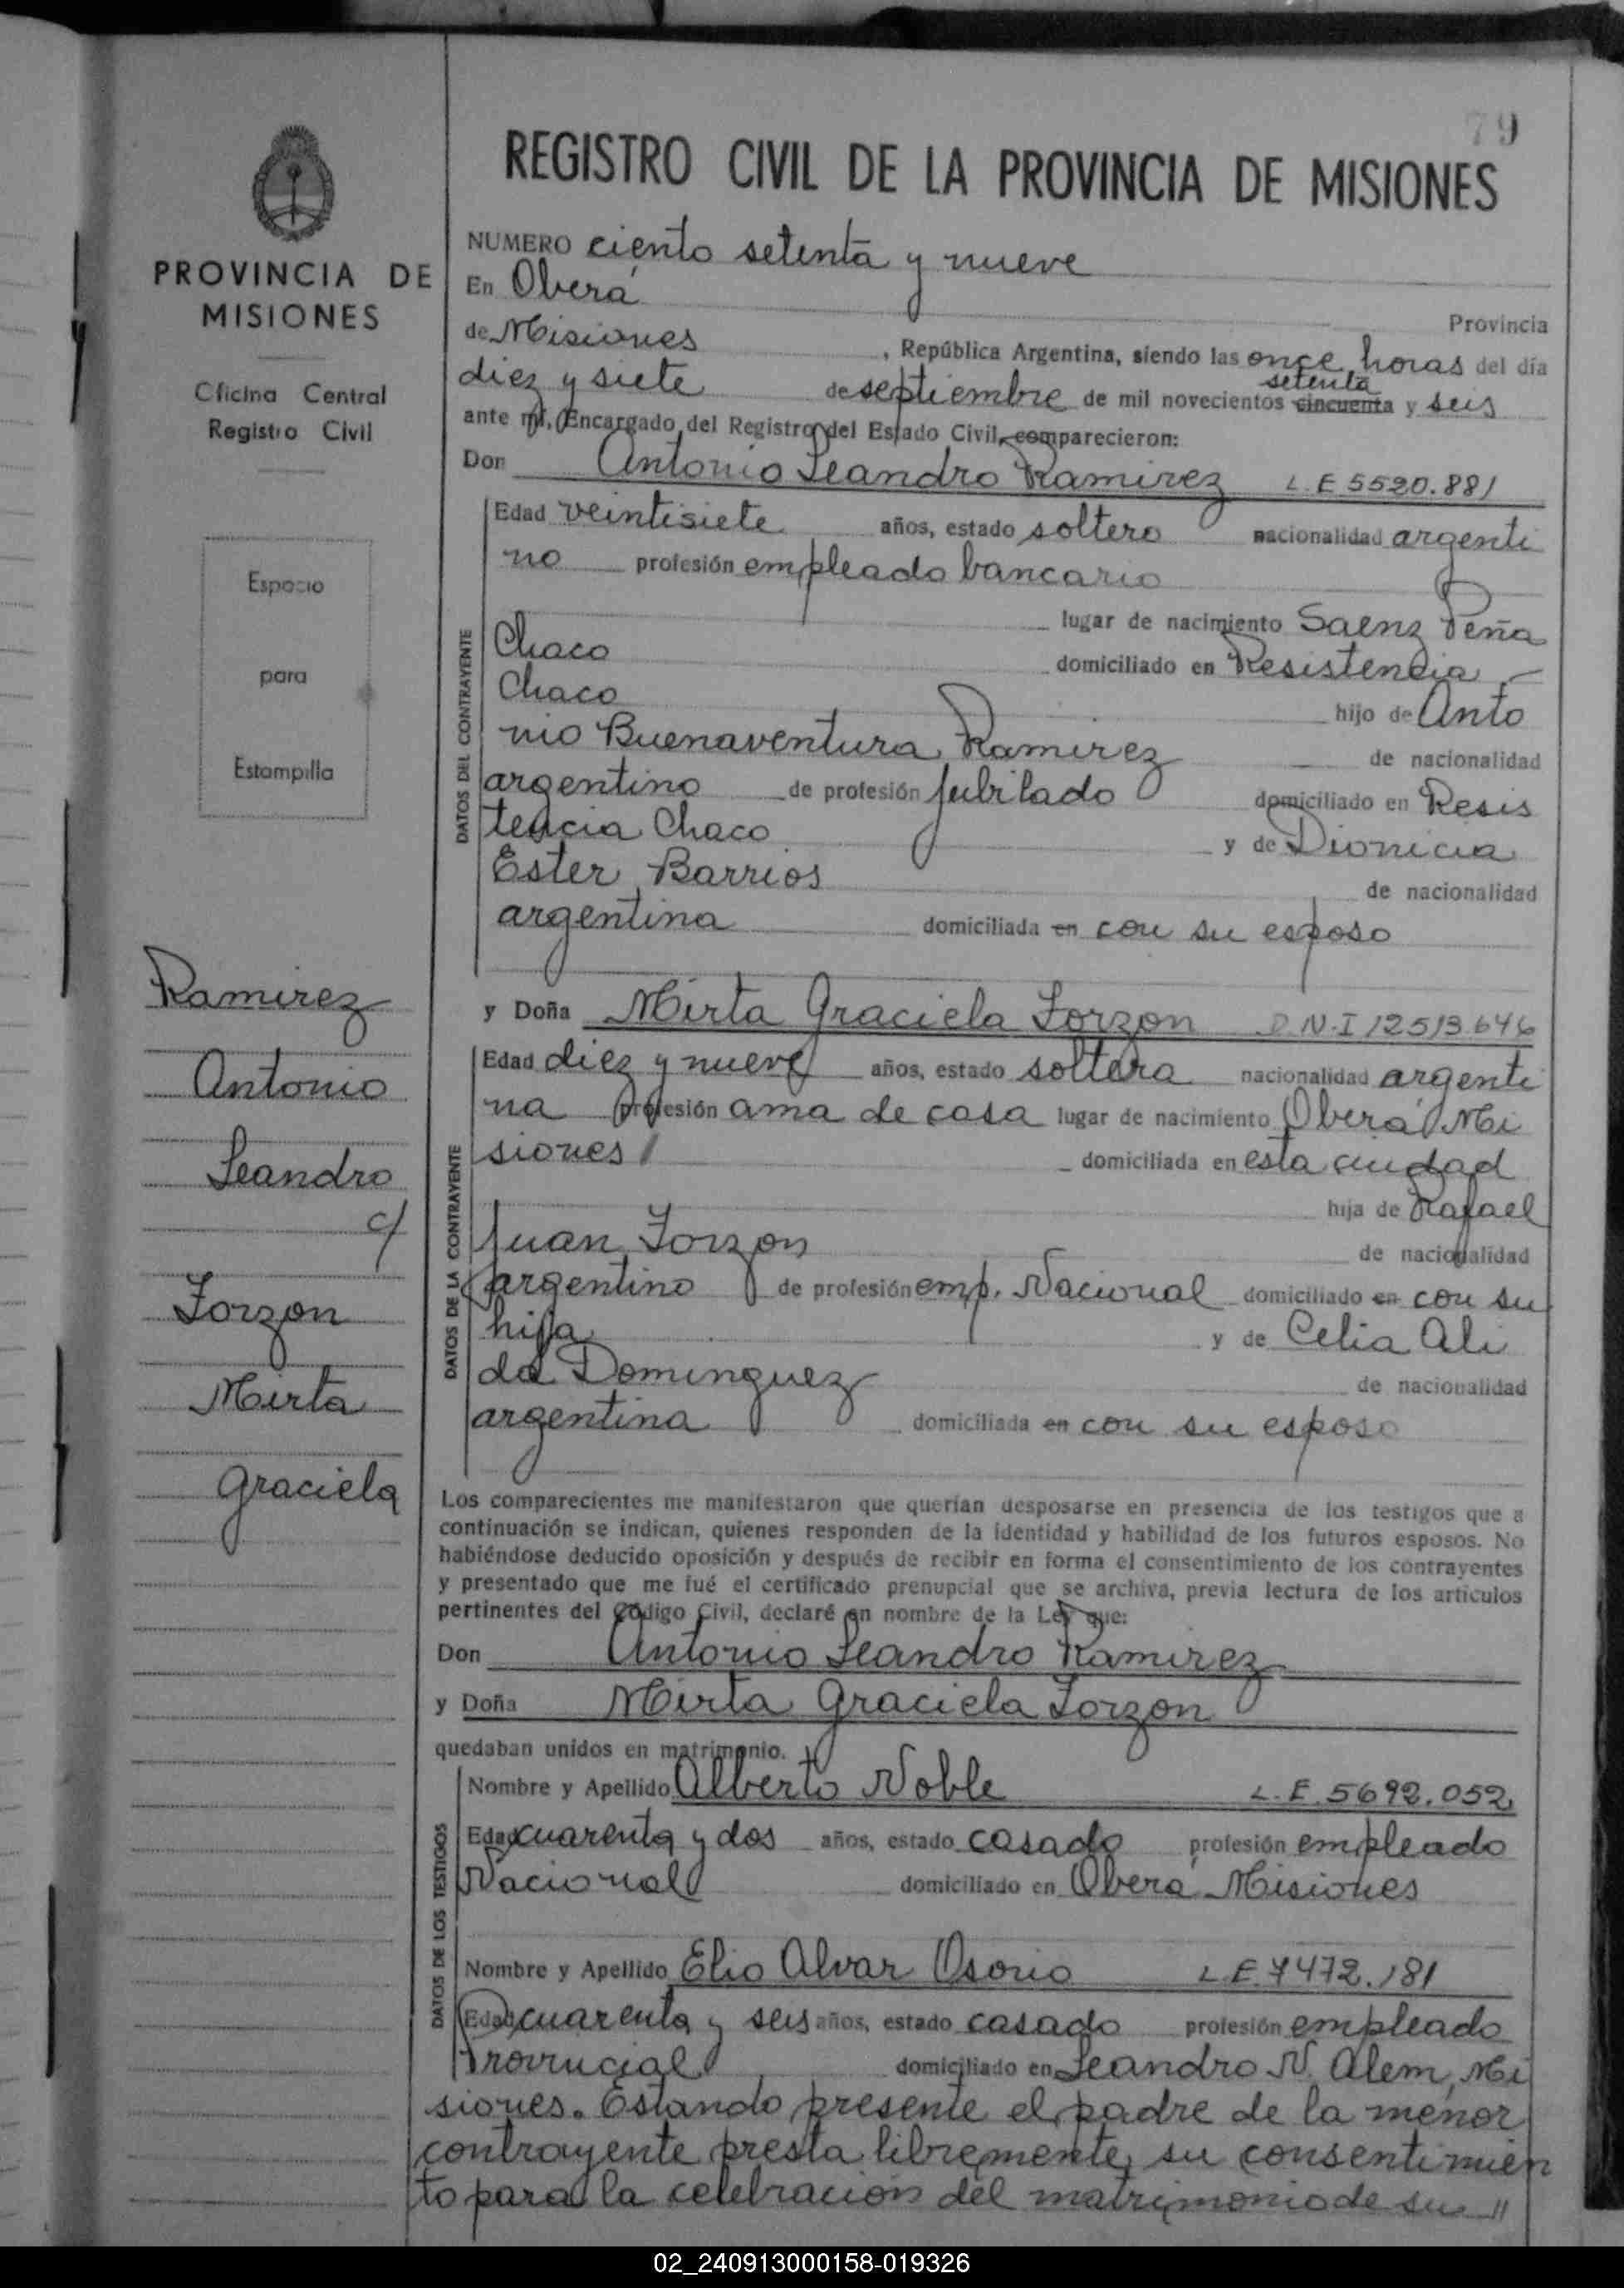 79
REGISTRO CIVIL DE LA PROVINCIA DE MISIONES
PROVINCIA DE
MISIONES
Oficina Central
Registro Civil
Espacio
para
Estampilla
Ramirez
Antonio
Leandro
c/
Zorzon
Mirta
Graciela
NUMERO ciento setenta y nueve
En Oberá
Provincia
de Misiones, República Argentina, siendo las once horas del día
diez y siete de septiembre de mil novecientos cincuenta setenta y seis
ante mí, Encargado del Registro del Estado Civil, comparecieron:
Don Antonio Leandro Ramirez L.E 5520.881
DATOS DEL CONTRAYENTE
Edad veintisiete años, estado soltero nacionalidad argenti
no profesión empleado bancario
lugar de nacimiento Saenz Peña
Chaco domiciliado en Resistencia
Chaco hijo de Anto
nio Buenaventura Ramirez de nacionalidad
argentino de profesión jubilado domiciliado en Resis
tencia Chaco y de Dionicia
Ester Barrios de nacionalidad
argentina domiciliada en con su esposo
y Doña Mirta Graciela Zorzon D.N.I 12513.646
DATOS DE LA CONTRAYENTE
Edad diez y nueve años, estado soltera nacionalidad argenti
na profesión ama de casa lugar de nacimiento Oberá Mi
siones domiciliada en esta ciudad
hija de Rafael
Juan Zorzon de nacionalidad
argentino de profesión emp. Nacional domiciliado en con su
hija y de Celia Ali
da Dominguez de nacionalidad
argentina domiciliada en con su esposo
Los comparecientes me manifestaron que querían desposarse en presencia de los testigos que a
continuación se indican, quienes responden de la identidad y habilidad de los futuros esposos. No
habiéndose deducido oposición y después de recibir en forma el consentimiento de los contrayentes
y presentado que me fué el certificado prenupcial que se archiva, previa lectura de los artículos
pertinentes del Código Civil, declaré en nombre de la Ley que:
Don Antonio Leandro Ramirez
y Doña Mirta Graciela Zorzon
quedaban unidos en matrimonio.
DATOS DE LOS TESTIGOS
Nombre y Apellido Alberto Noble L.E. 5692.052
Edad cuarenta y dos años, estado casado profesión empleado
Nacional domiciliado en Oberá Misiones
Nombre y Apellido Elio Alvar Osorio L.E. 7472.181
Edad cuarenta y seis años, estado casado profesión empleado
Provincial domiciliado en Leandro N. Alem, Mi
siones. Estando presente el padre de la menor
contrayente presta libremente su consentimien
to para la celebracion del matrimonio de su //
02_240913000158-019326